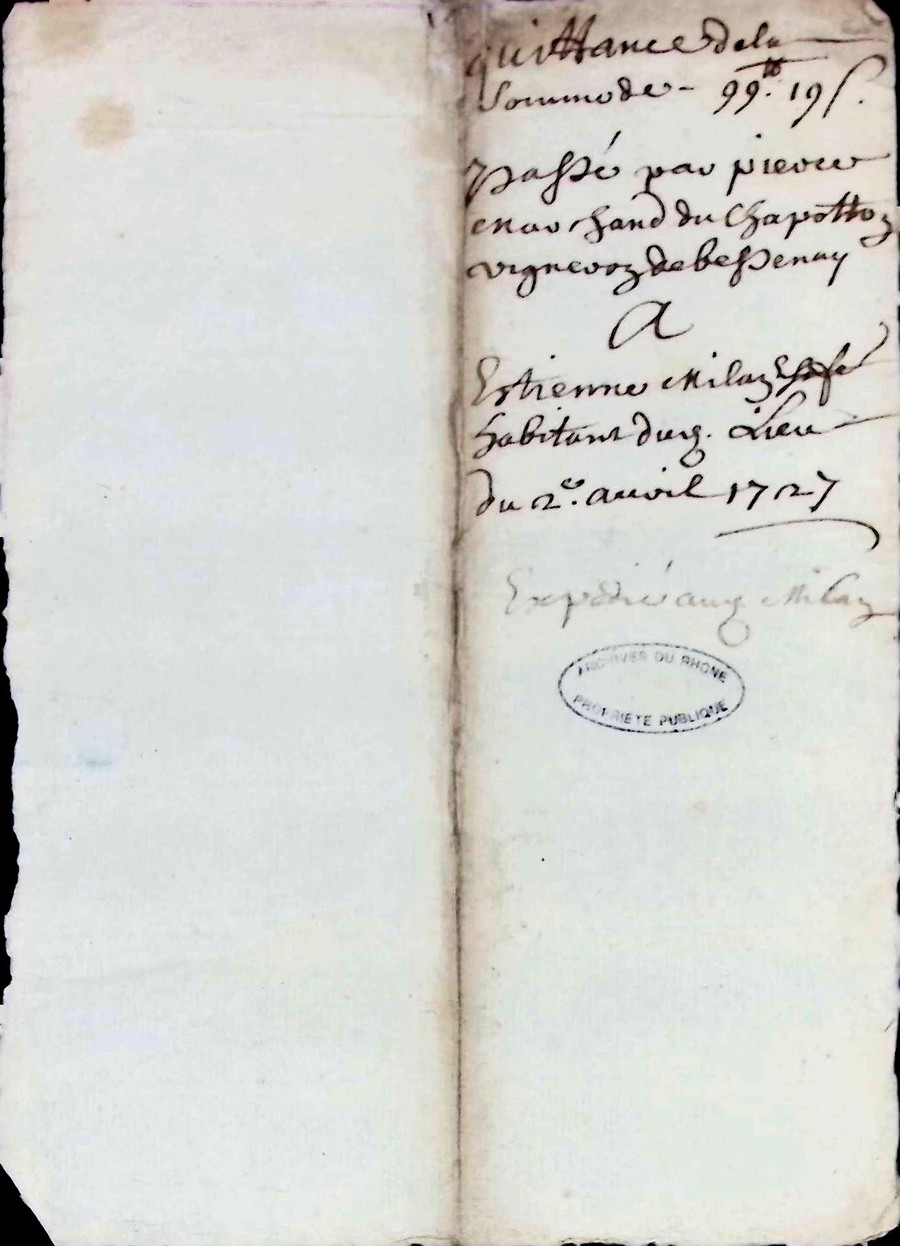 quittance de la
somme de - 99.tt 19 s.
passé par pierre
marchand du Chapottoz
vigneroz de bessenay
A
Estienne Milaz
habitant dud. Lieu
du 2e. auril 1727
Expédié aud. Milaz
ARCHIVES DU RHONE
PROPRIETE PUBLIQUE